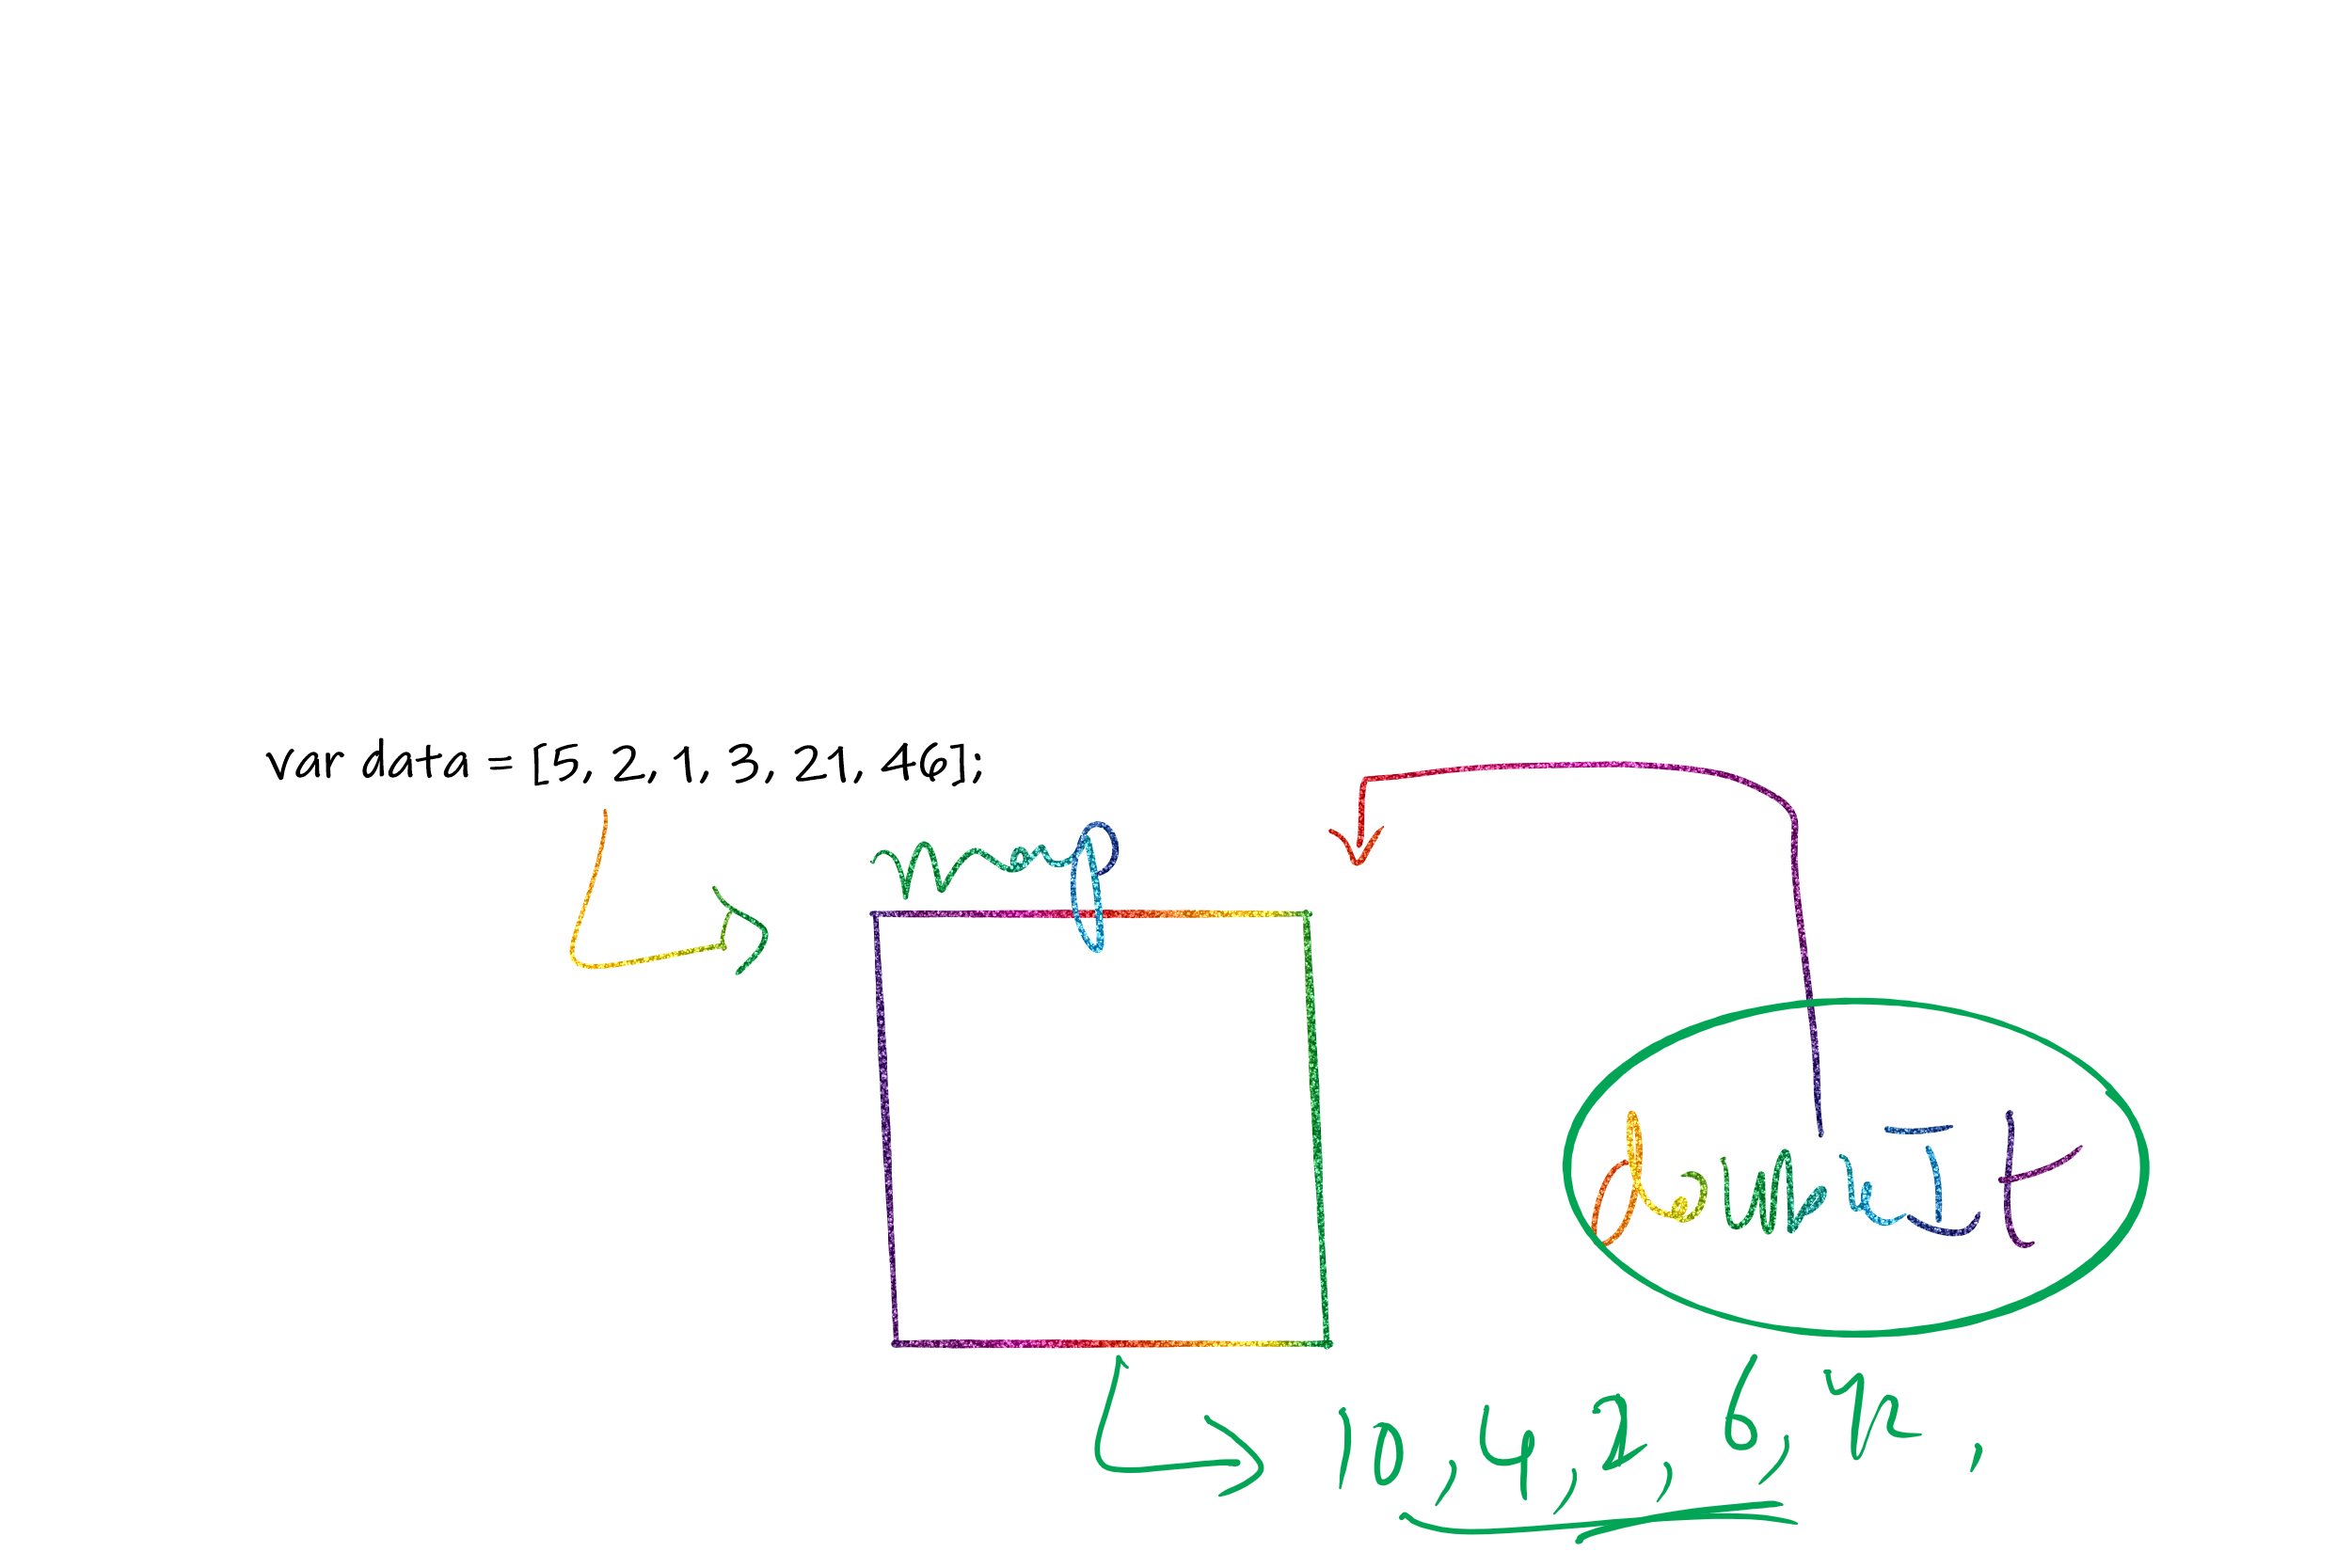 var data = [5, 2, 1, 3, 21, 46];
map
doubleIt
10, 4, 2, 6, 42,